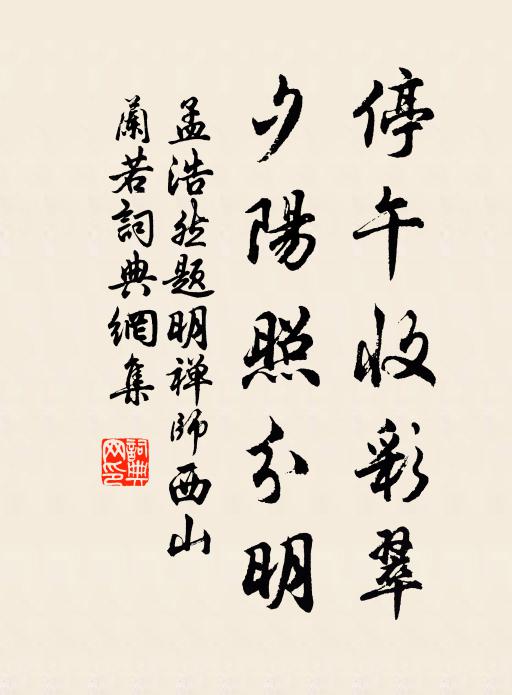 停午收彩翠
夕陽照分明
孟浩然題明禅師西山
蘭若詞典網集
詞典網印